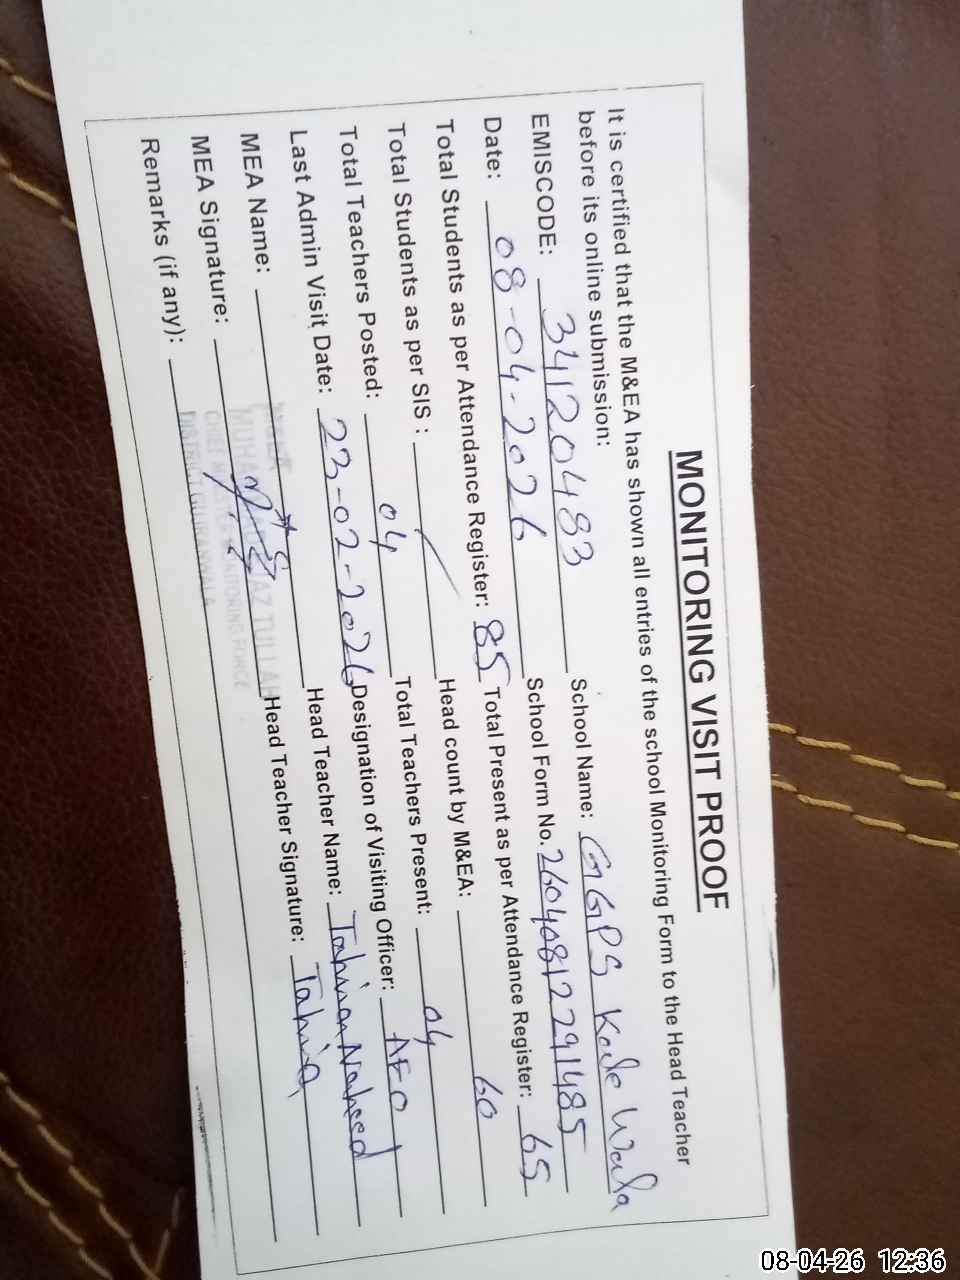 MONITORING VISIT PROOF
It is certified that the M&EA has shown all entries of the school Monitoring Form to the Head Teacher
before its online submission:
EMISCODE: 34120483 School Name: GGPS Kode Wala
Date: 08-04-2026 School Form No. 260408122291485
Total Students as per Attendance Register: 85 Total Present as per Attendance Register: 65
Total Students as per SIS : Head count by M&EA: 60
Total Teachers Posted: 04 Total Teachers Present: 04
Last Admin Visit Date: 23-02-2026 Designation of Visiting Officer: AEO
MEA Name: Head Teacher Name: Naheed
MEA Signature: Head Teacher Signature:
Remarks (if any):
CHIEF MINISTER MONITORING FORCE
DISTRICT GUJRANWALA
08-04-26 12:36